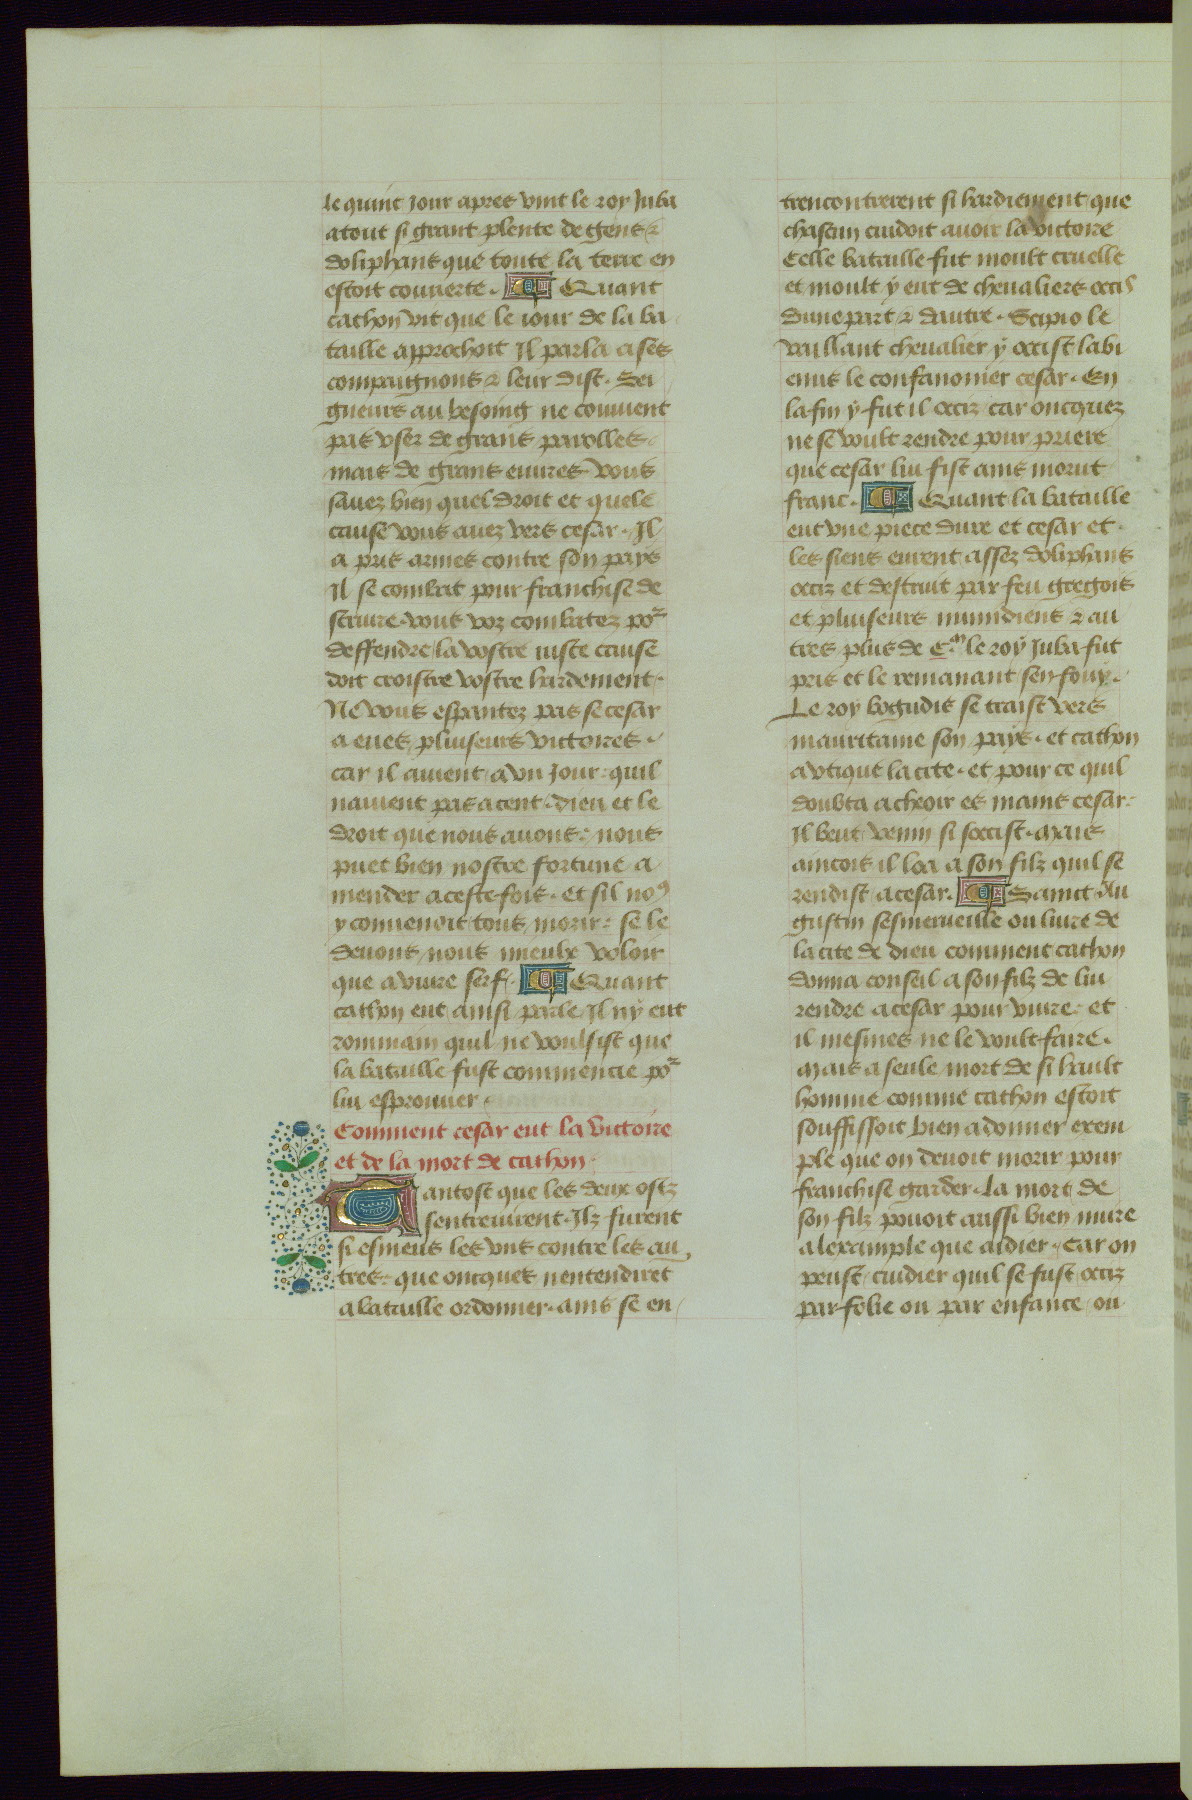 le quint jour apres vint le roy Juba
atout si grant plente de gens ⁊
doliphans que toute la terre en
estoit couuerte. Quant
cathon vit que le iour de la ba
taille approchoit Il parla a ses
compaignons ⁊ leur dist. Sei
gneurs au besoing ne conuient
pas vser de grans parolles
mais de grans euures. vous
sauez bien quel droit et quele
cause vous auez vers cesar. Il
a pris armes contre son pays
Il se combat pour franchise de
seruire. vous voz combatez poᷣ
deffendre la vostre iuste cause
doit croistre vostre hardement.
Ne vous espantez pas se cesar
a eues pluiseurs victoires.
car il auient a vn Jour: quil
nauient pas a cent. dieu et le
droit que nous auons: nous
puet bien nostre fortune a
mender a ceste fois. et sil noꝰ
y conuenoit tous morir: se le
deuons nous mieulx voloir
que a viure serf. Quant
cathon eut ainsi parle Il ny eut
rommain quil ne voulsist que
la bataille fust commencie poᷣ
lui esprouuer.
Comment cesar eut la victoire
et de la mort de cathon.
Tantost que les deux ostz
sentreuirent. Ilz furent
si esmeus les vns contre les au
tres: que oncques nentendirēt
a bataille ordonner. ains se en
trencontrerent si hardiement que
chascun cuidoit auoir la victoire
Celle bataille fut moult cruelle
et moult y eut de cheualiers occis
dune part ⁊ dautre. Scipio le
vaillant cheualier y occist labi
enus le confanonier cesar. En
la fin y fut il occiz car oncquez
ne se voult rendre pour priere
que cesar lui fist ains morut
franc. Quant la bataille
eut vne piece dure et cesar et
les siens eurent assez doliphans
occiz et destruit par feu gregois
et pluiseurs numidiens ⁊ au
tres plus de C.ᵐ le roy Juba fut
pris et le remanant sen fouy.
Le roy bogudis se traist vers
mauritaine son pays. et cathon
a vtique la cite. et pour ce quil
doubta a cheoir es mains cesar:
Il beut venin si soccist. mais
aincois il loa a son filz quil se
rendist a cesar. Saint Au
gustin sesmerueille ou liure de
la cite de dieu comment cathon
donna conseil a son filz de lui
rendre a cesar pour viure: et
il mesmes ne le voult faire.
Mais a seule mort de si hault
homme comme cathon estoit
souffissoit bien a donner exem
ple que on deuoit morir pour
franchise garder. La mort de
son filz pouoit aussi bien nuire
a lexample que aidier. Car on
peust cuidier quil se fust occiz
par folie ou par enfance ou